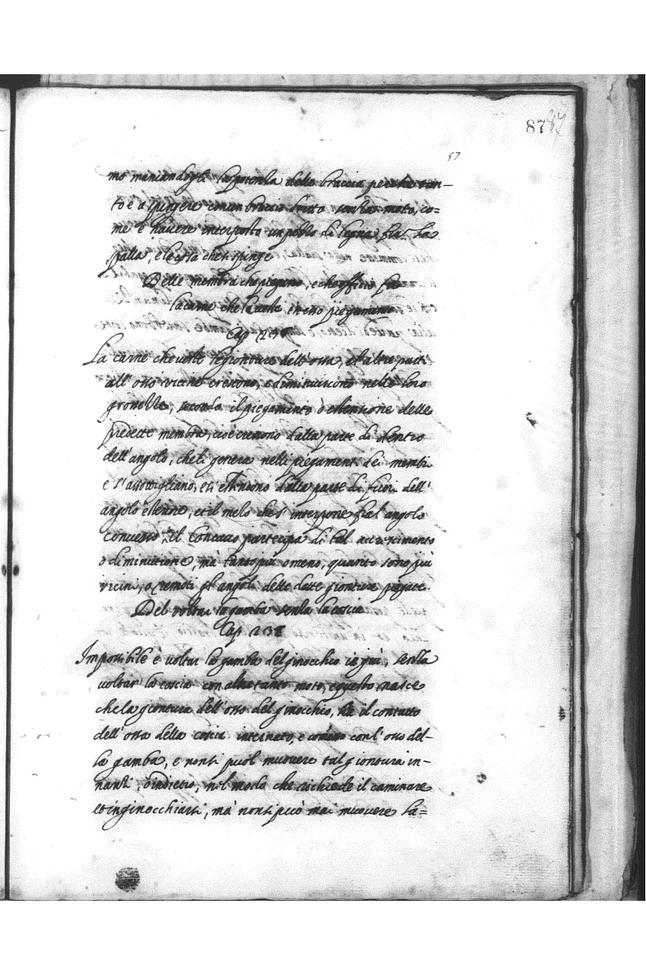 87 87
57
mo mancandogli la potentia delle braccia perche tan-
to è a spigere con un braccio dritto contra moto, co-
me è havere interposto un pezzo di legno fra la
spalla, e la cosa che si spinge
Delle membra che piegano, e che offitio fa
la carne che le veste in esso piegamento
Cap.
La carne che veste le gionture dell'ossa, et altre parti
all'osso vicine crescono, e diminuiscono nelle loro
grossezze, secondo il piegamento ò estensione delle
predette membra, cioè crescono dalla parte di dentro
dell'angolo, che si genera nelli piegamenti dei membri
e s'assottigliano, et si estendono dalla parte di fuori dell'
angolo esteriore, et il mezo che s'interpone fra l'angolo
convesso, e il concavo partecipa di tal accrescimento
ò diminutione, mà tanto più ò meno, quanto sono più
vicini, ò remoti gli angoli delle dette gionture piegate.
Del voltar la gamba senza la coscia
Cap.
Impossibile è voltar la gamba del ginocchio in giù, senza
voltar la coscia con altretanto moto, e questo nasce
che la giontura dell'osso del ginocchio, hà il contatto
dell'osso della coscia internato, e comisso con l'osso del-
la gamba, e non si puol muovere tal giontura in-
nanti, ò indietro, nel modo che richiede il caminare
et inginocchiarsi, mà non si può mai muovere la=